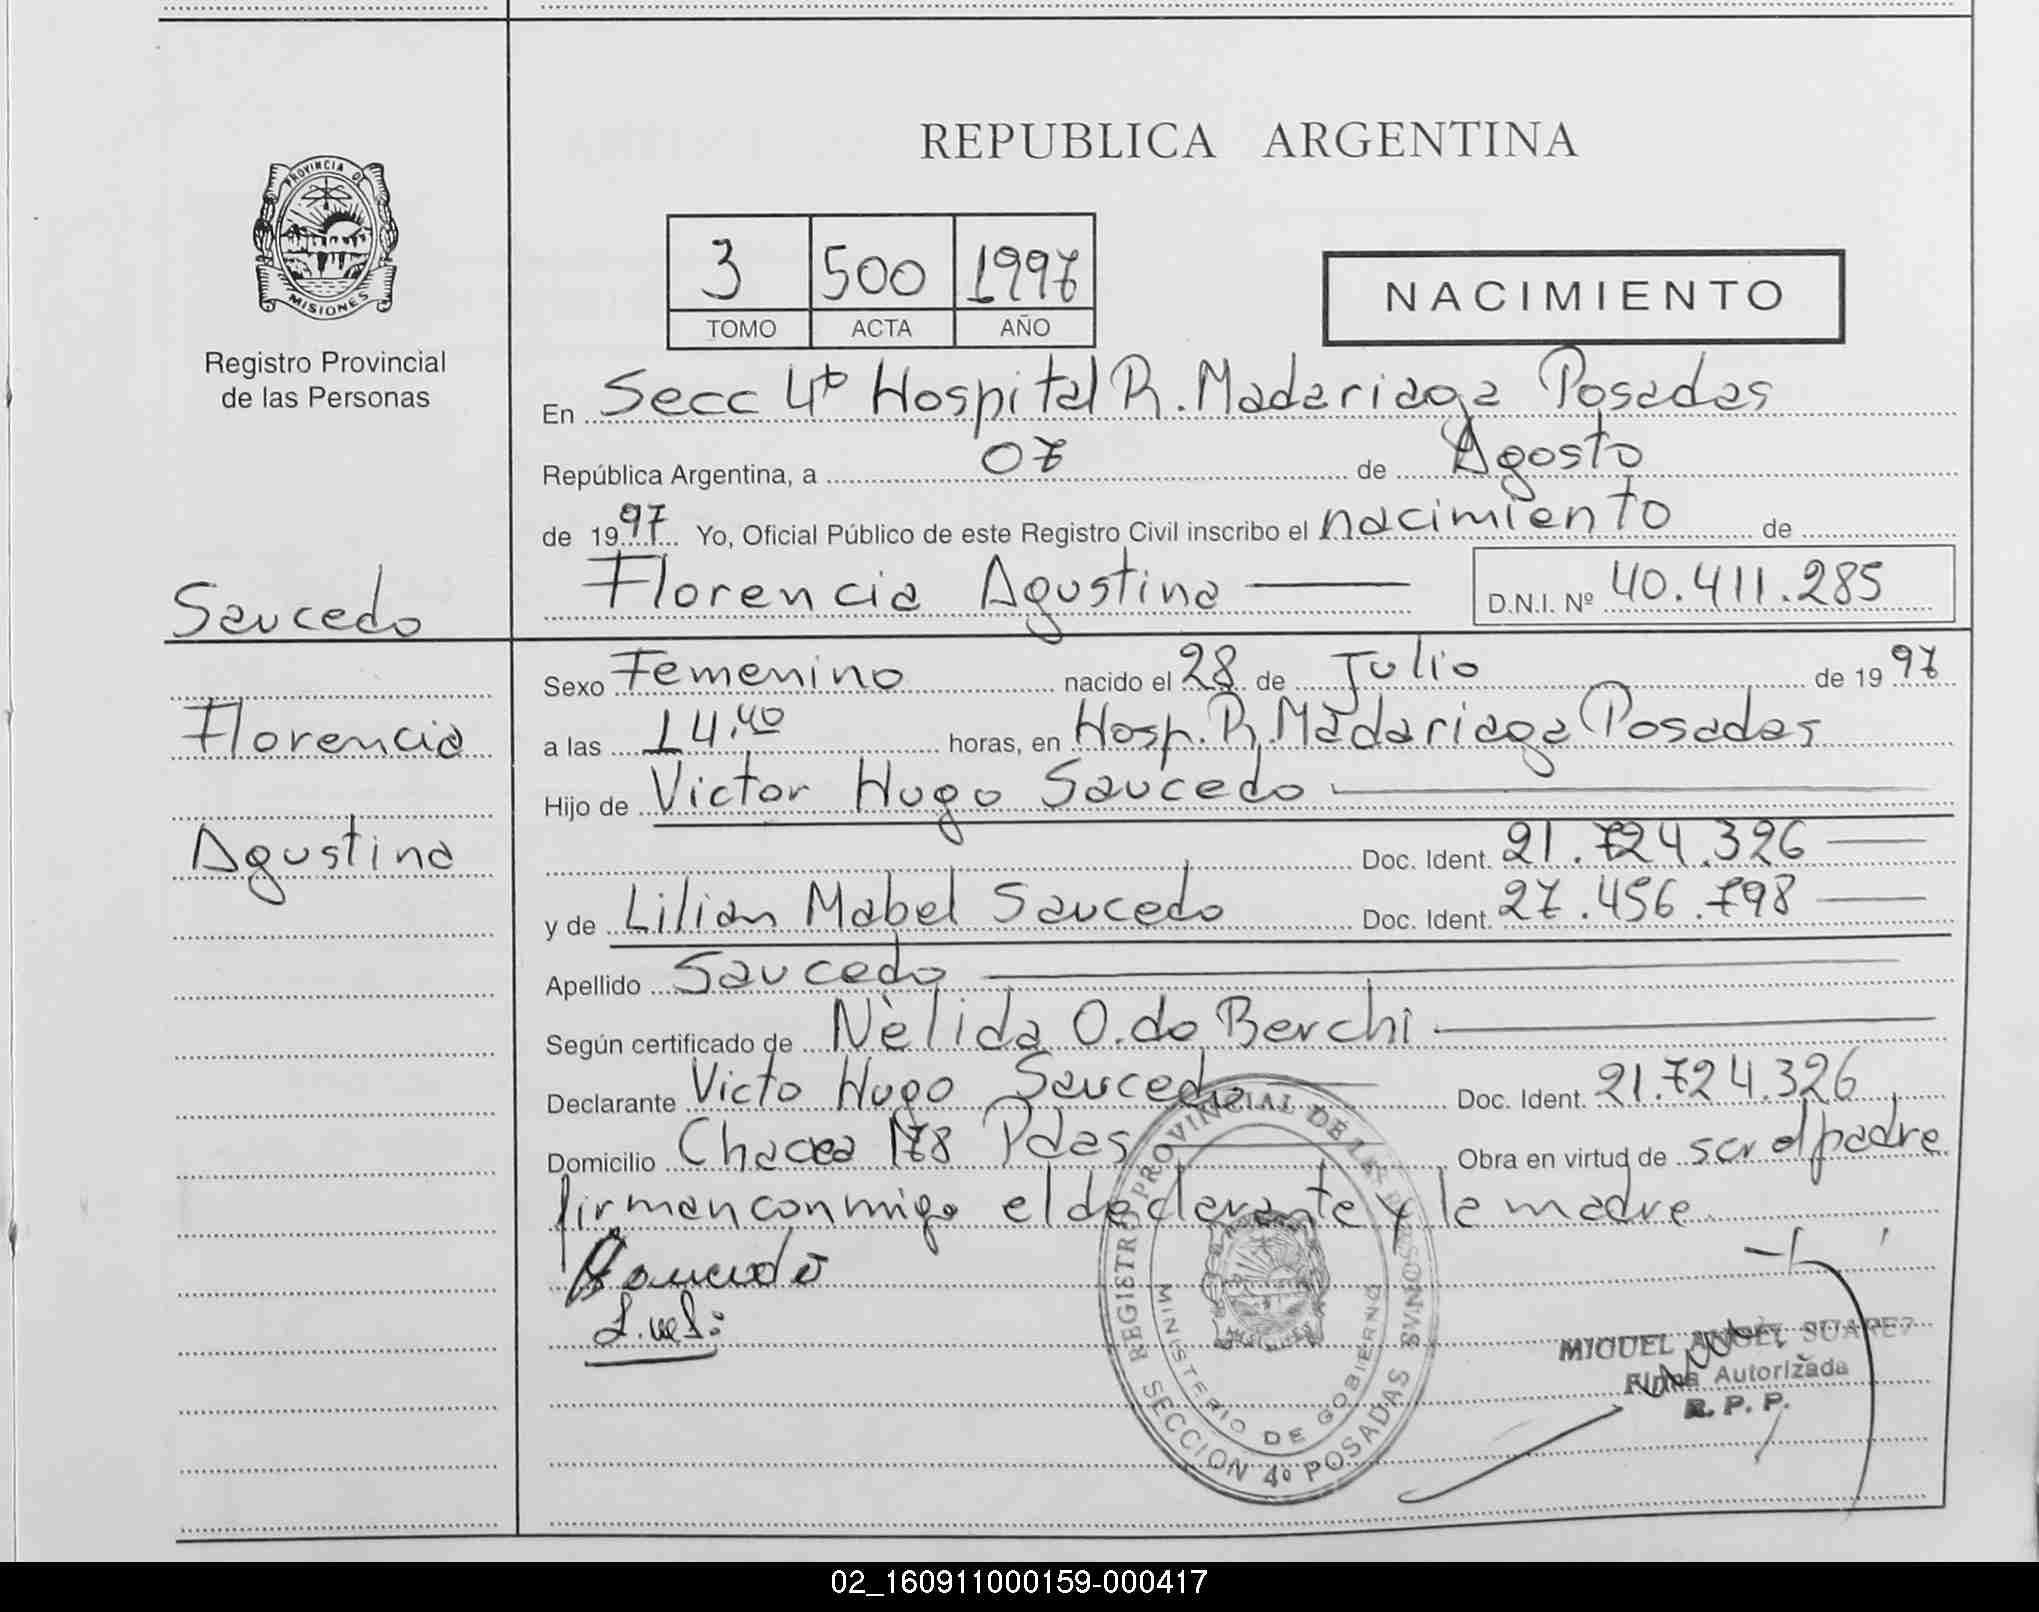 REPUBLICA ARGENTINA
PROVINCIA DE
MISIONES
Registro Provincial
de las Personas
3 500 1997
TOMO ACTA AÑO
NACIMIENTO
En Secc 4ª Hospital R. Madariaga Posadas
República Argentina, a 07 de Agosto
de 1997 Yo, Oficial Público de este Registro Civil inscribo el nacimiento de
Florencia Agustina
D.N.I. Nº 40.411.285
Saucedo
Florencia
Agustina
Sexo Femenino nacido el 28 de Julio de 1997
a las 14.40 horas, en Hosp. R. Madariaga Posadas
Hijo de Victor Hugo Saucedo
Doc. Ident. 21.724.326
y de Lilian Mabel Saucedo Doc. Ident. 27.456.798
Apellido Saucedo
Según certificado de Nèlida O. do Berchi
Declarante Victo Hugo Saucedo Doc. Ident. 21.724.326
Domicilio Chacra 178 Pdas Obra en virtud de ser el padre
firman conmigo el declarante y la madre
REGISTRO PROVINCIAL DE LAS PERSONAS
MINISTERIO DE GOBIERNO
SECCION 4º POSADAS
MIGUEL ANGEL SUAREZ
Firma Autorizada
R. P. P.
02_160911000159-000417